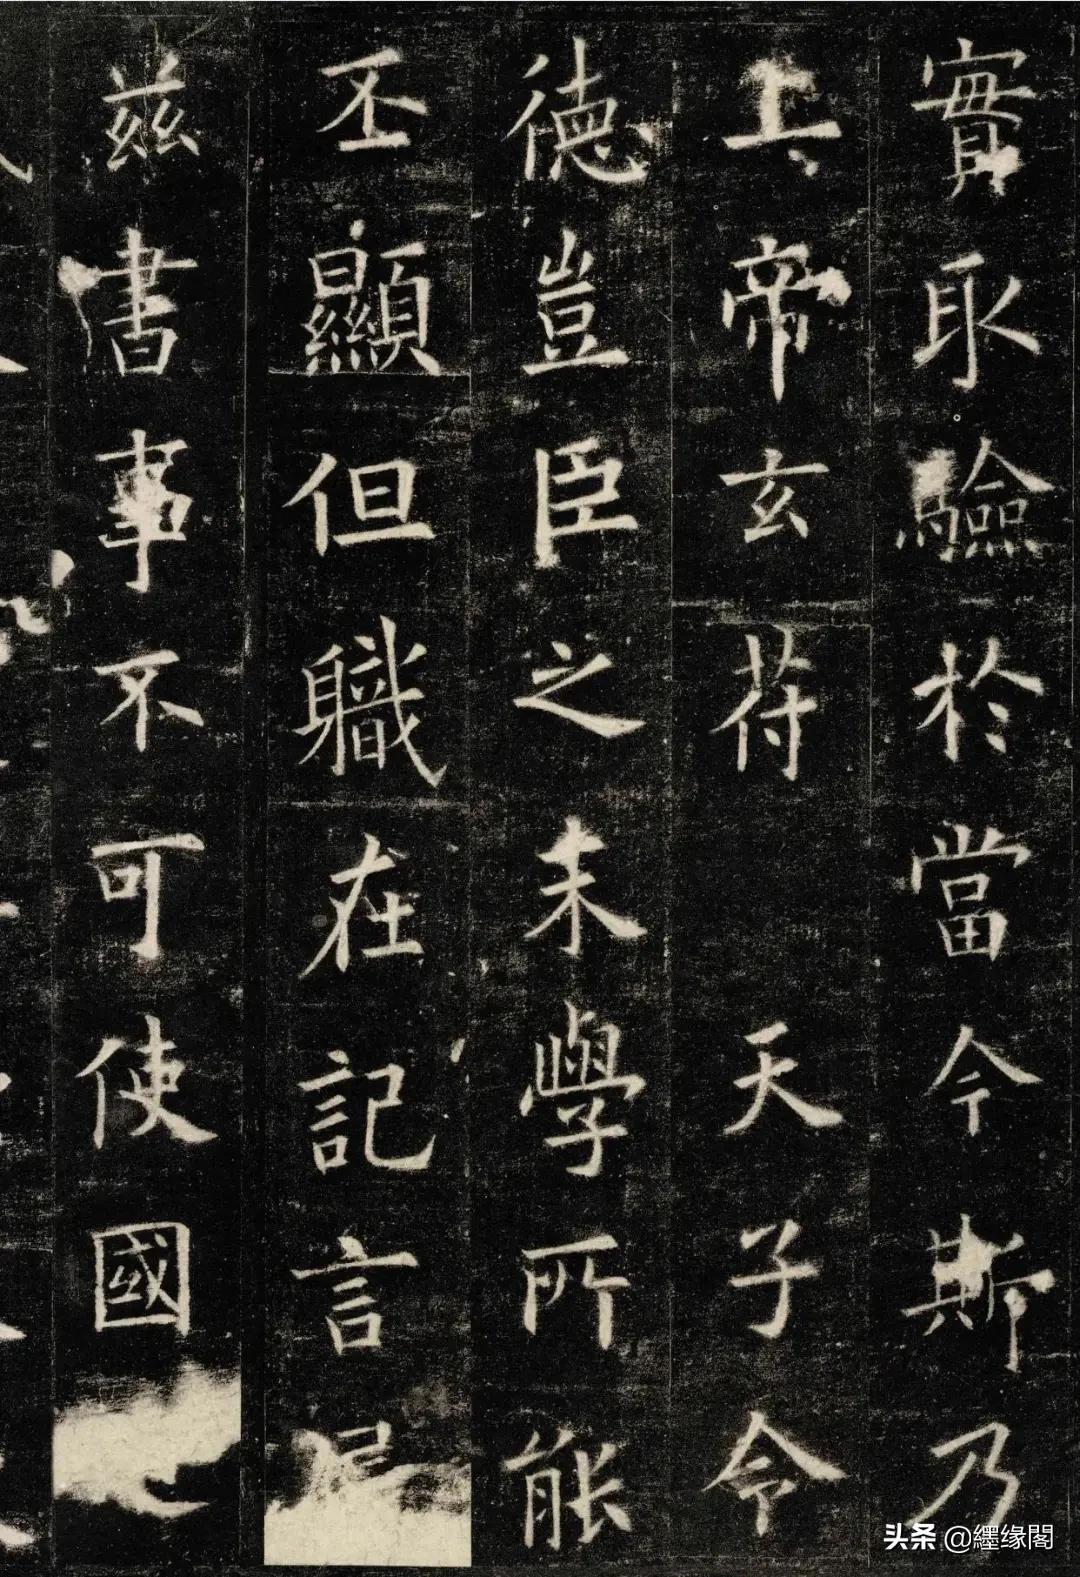 實取驗於當今斯乃
上帝玄符 天子令
德豈臣之末學所能
丕顯但職在記言屬
茲書事不可使國之
头条 @纆缘閣